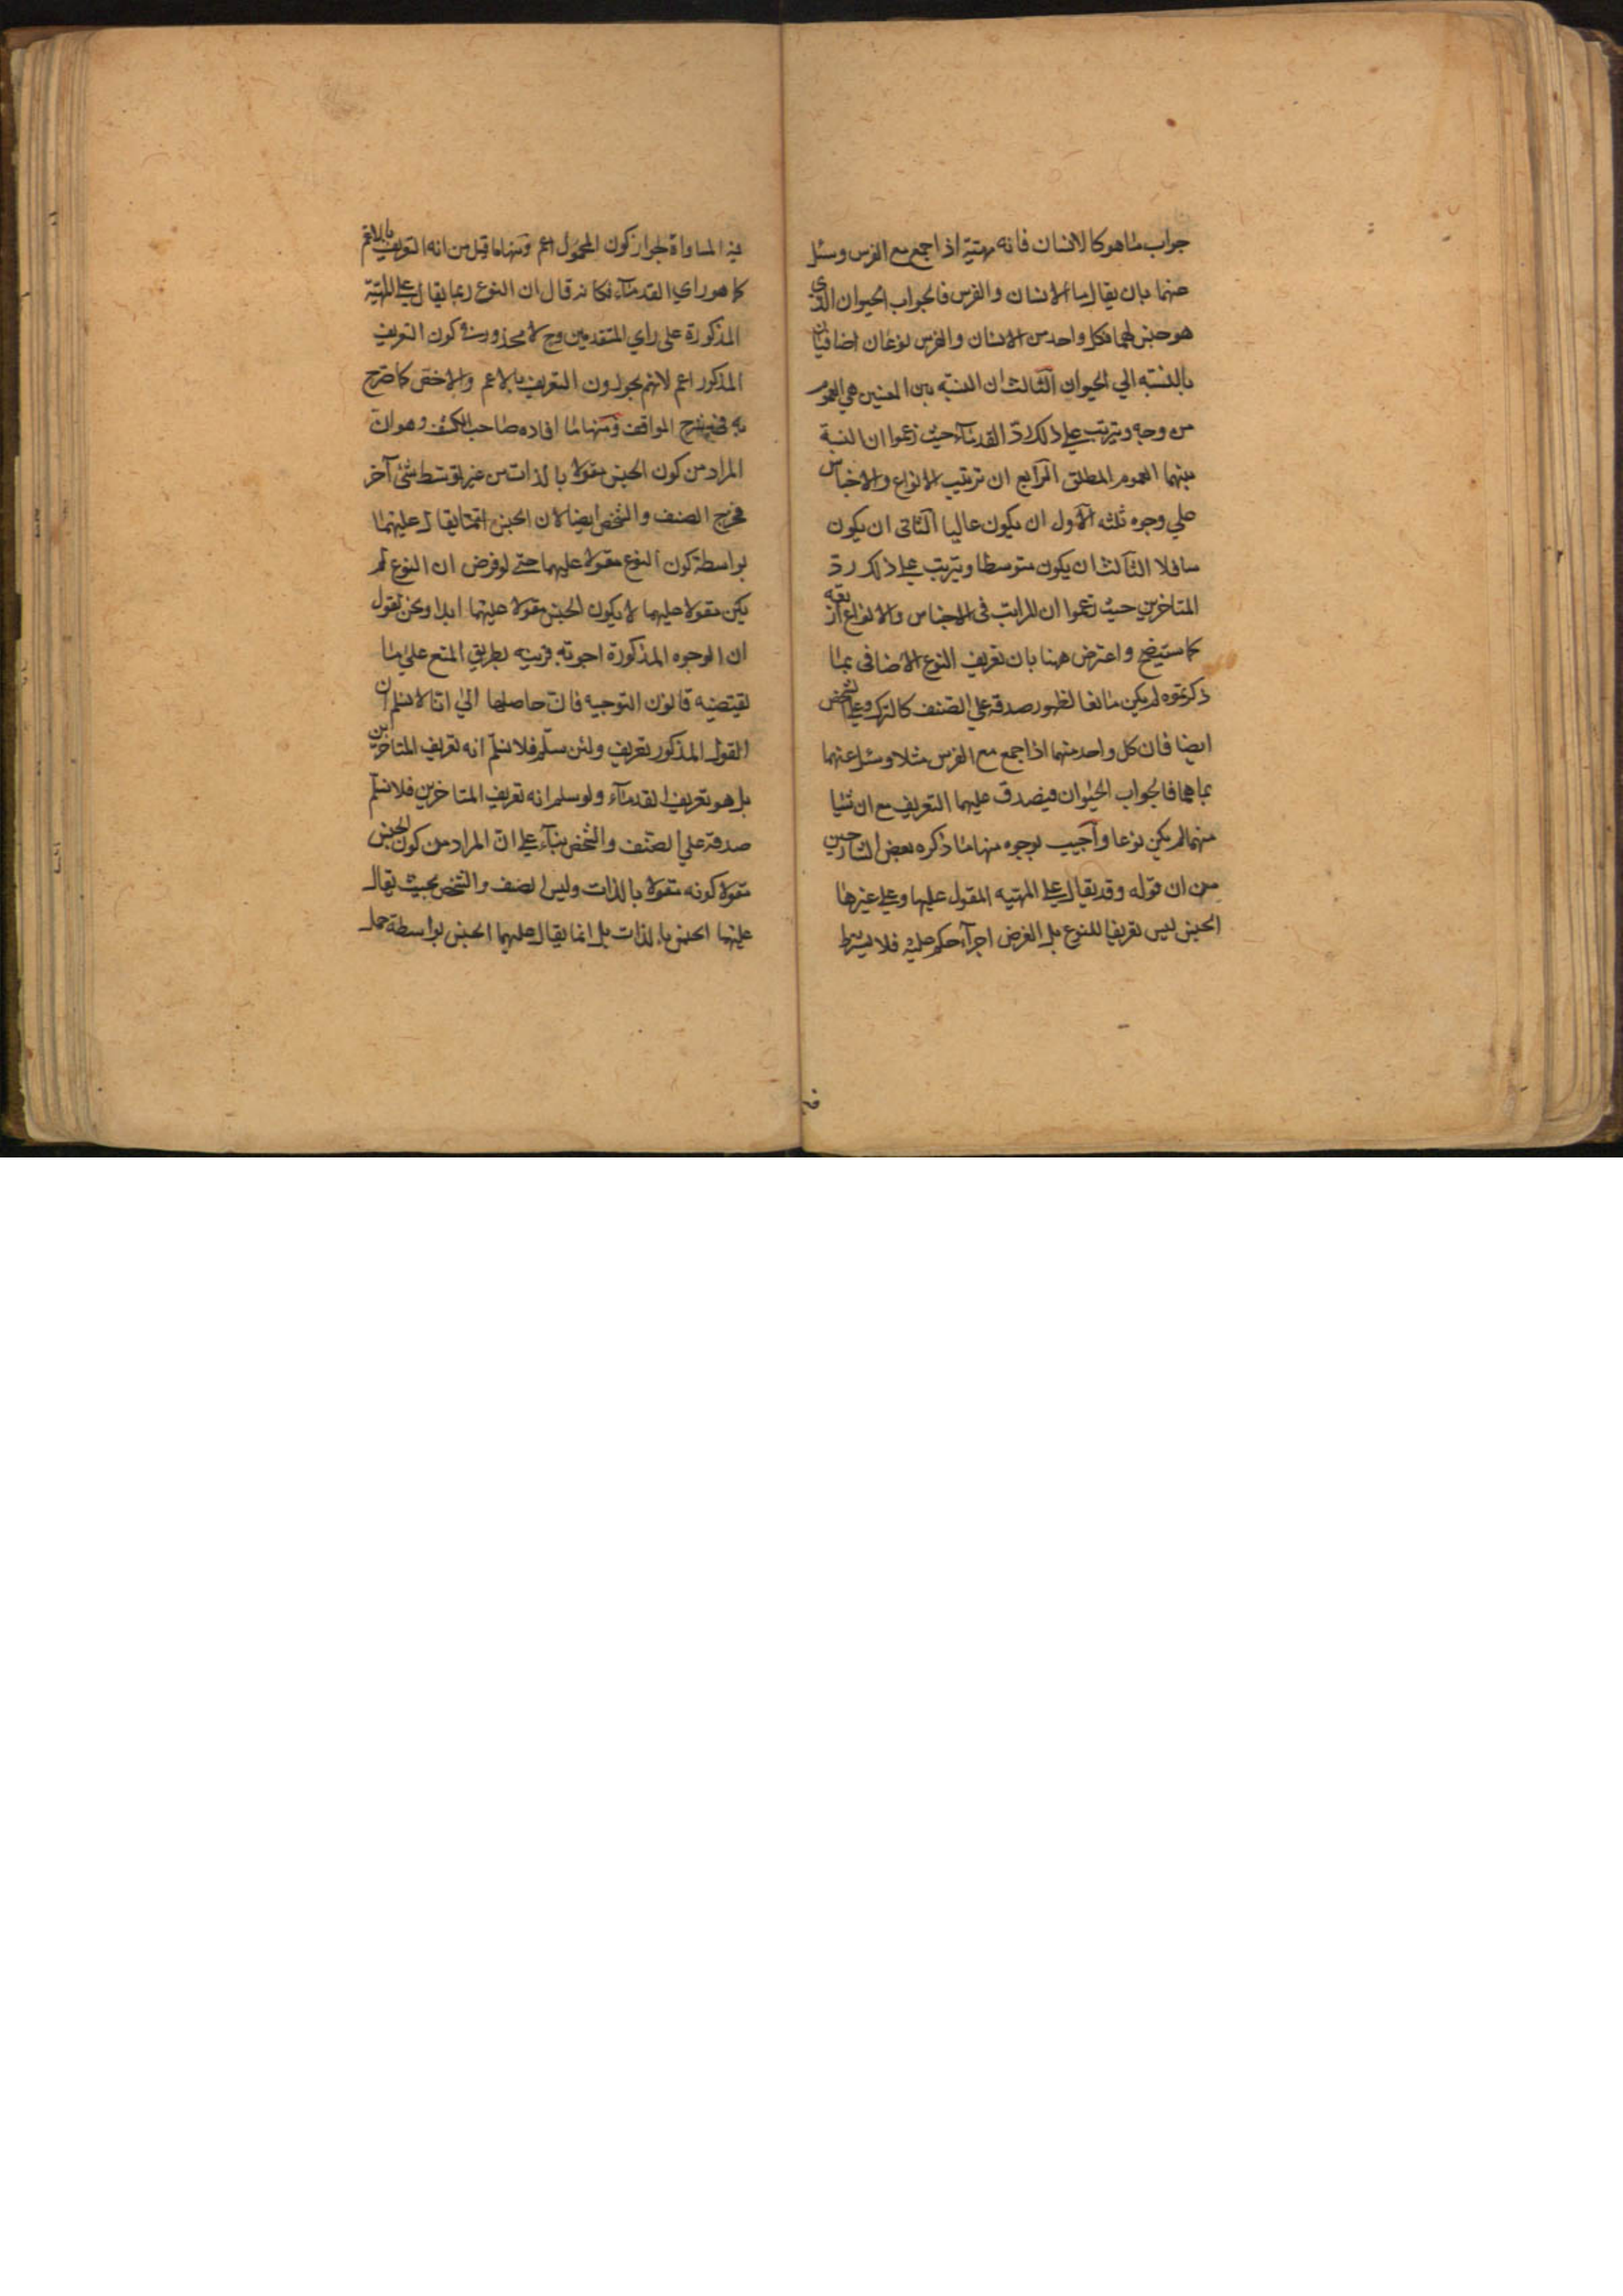 جواب ما هو كالانسان فانه مهيّة اذا جمع مع الفرس وسئل
عنهما بان يقال ما الانسان والفرس فالجواب الحيوان الذي
هو جنس لهما فكل واحد من الانسان والفرس نوعان اضافيان
بالنسبة الي الحيوان الثالث ان النسبة بين المعنيين هي العموم
من وجه ويترتب علي ذلك ردّ القدماء حيث زعموا ان النسبة
بينهما العموم المطلق الرابع ان ترتيب الانواع والاجناس
علي وجوه ثلثه الاول ان يكون عاليا الثاني ان يكون
سافلا الثالث ان يكون متوسطا ويترتب علي ذلك ردّ
المتاخرين حيث زعموا ان المراتب في الاجناس والانواع اربعة
كما ستيضح واعترض ههنا بان تعريف النوع الاضافي بما
ذكرتموه لم يكن مانعا لظهور صدقه علي الصنف كالترك وعلي الشخص
ايضا فان كل واحد منهما اذا جمع مع الفرس مثلا وسئل عنهما
بما هما فالجواب الحيوان فيصدق عليهما التعريف مع ان شيئا
منهما لم يكن نوعا وأجيب بوجوه منها ما ذكره بعض الشارحين
من ان قوله وقد يقال علي المهيه المقول عليها وعلي غيرها
الجنس ليس تعريفا للنوع بل الغرض اجرآء حكم عليه فلا يشترط
فيه المساواة لجواز كون المحمول اعم ومنها ما قيل من انه التعريف بالاعم
كما هو راي القدمآء فكانه قال ان النوع ربما يقال علي المهيّة
المذكورة علي راي المتقدمين وح لا محذور في كون التعريف
المذكور اعم لانهم يجوزون التعريف بالاعم والاخص كما صرح
به في شرح المواقف ومنها ما افاده صاحب الكشف وهو ان
المراد من كون الجنس مقولا بالذات من غير توسط شئ آخر
فخرج الصنف والشخص ايضا لان الجنس انما يقال عليهما
بواسطة كون النوع مقولا عليهما حتي لو فرض ان النوع لم
يكن مقولا عليهما لا يكون الجنس مقولا عليهما ابدا ونحن نقول
ان الوجوه المذكورة اجوبة قريبه بطريق المنع علي ما
يقتضيه قانون التوجيه فان حاصلها الي انا لا نسلم ان
القول المذكور تعريف ولئن سلّم فلا نسلّم انه تعريف المتاخرين
بل هو تعريف القدمآء ولو سلم انه تعريف المتاخرين فلا نسلّم
صدقه علي الصنف والشخص بنآء علي ان المراد من كون الجنس
مقولا كونه مقولا بالذات وليس الصنف والشخص بحيث يقال
عليهما الجنس بالذات بل انما يقال عليهما الجنس بواسطة حمل